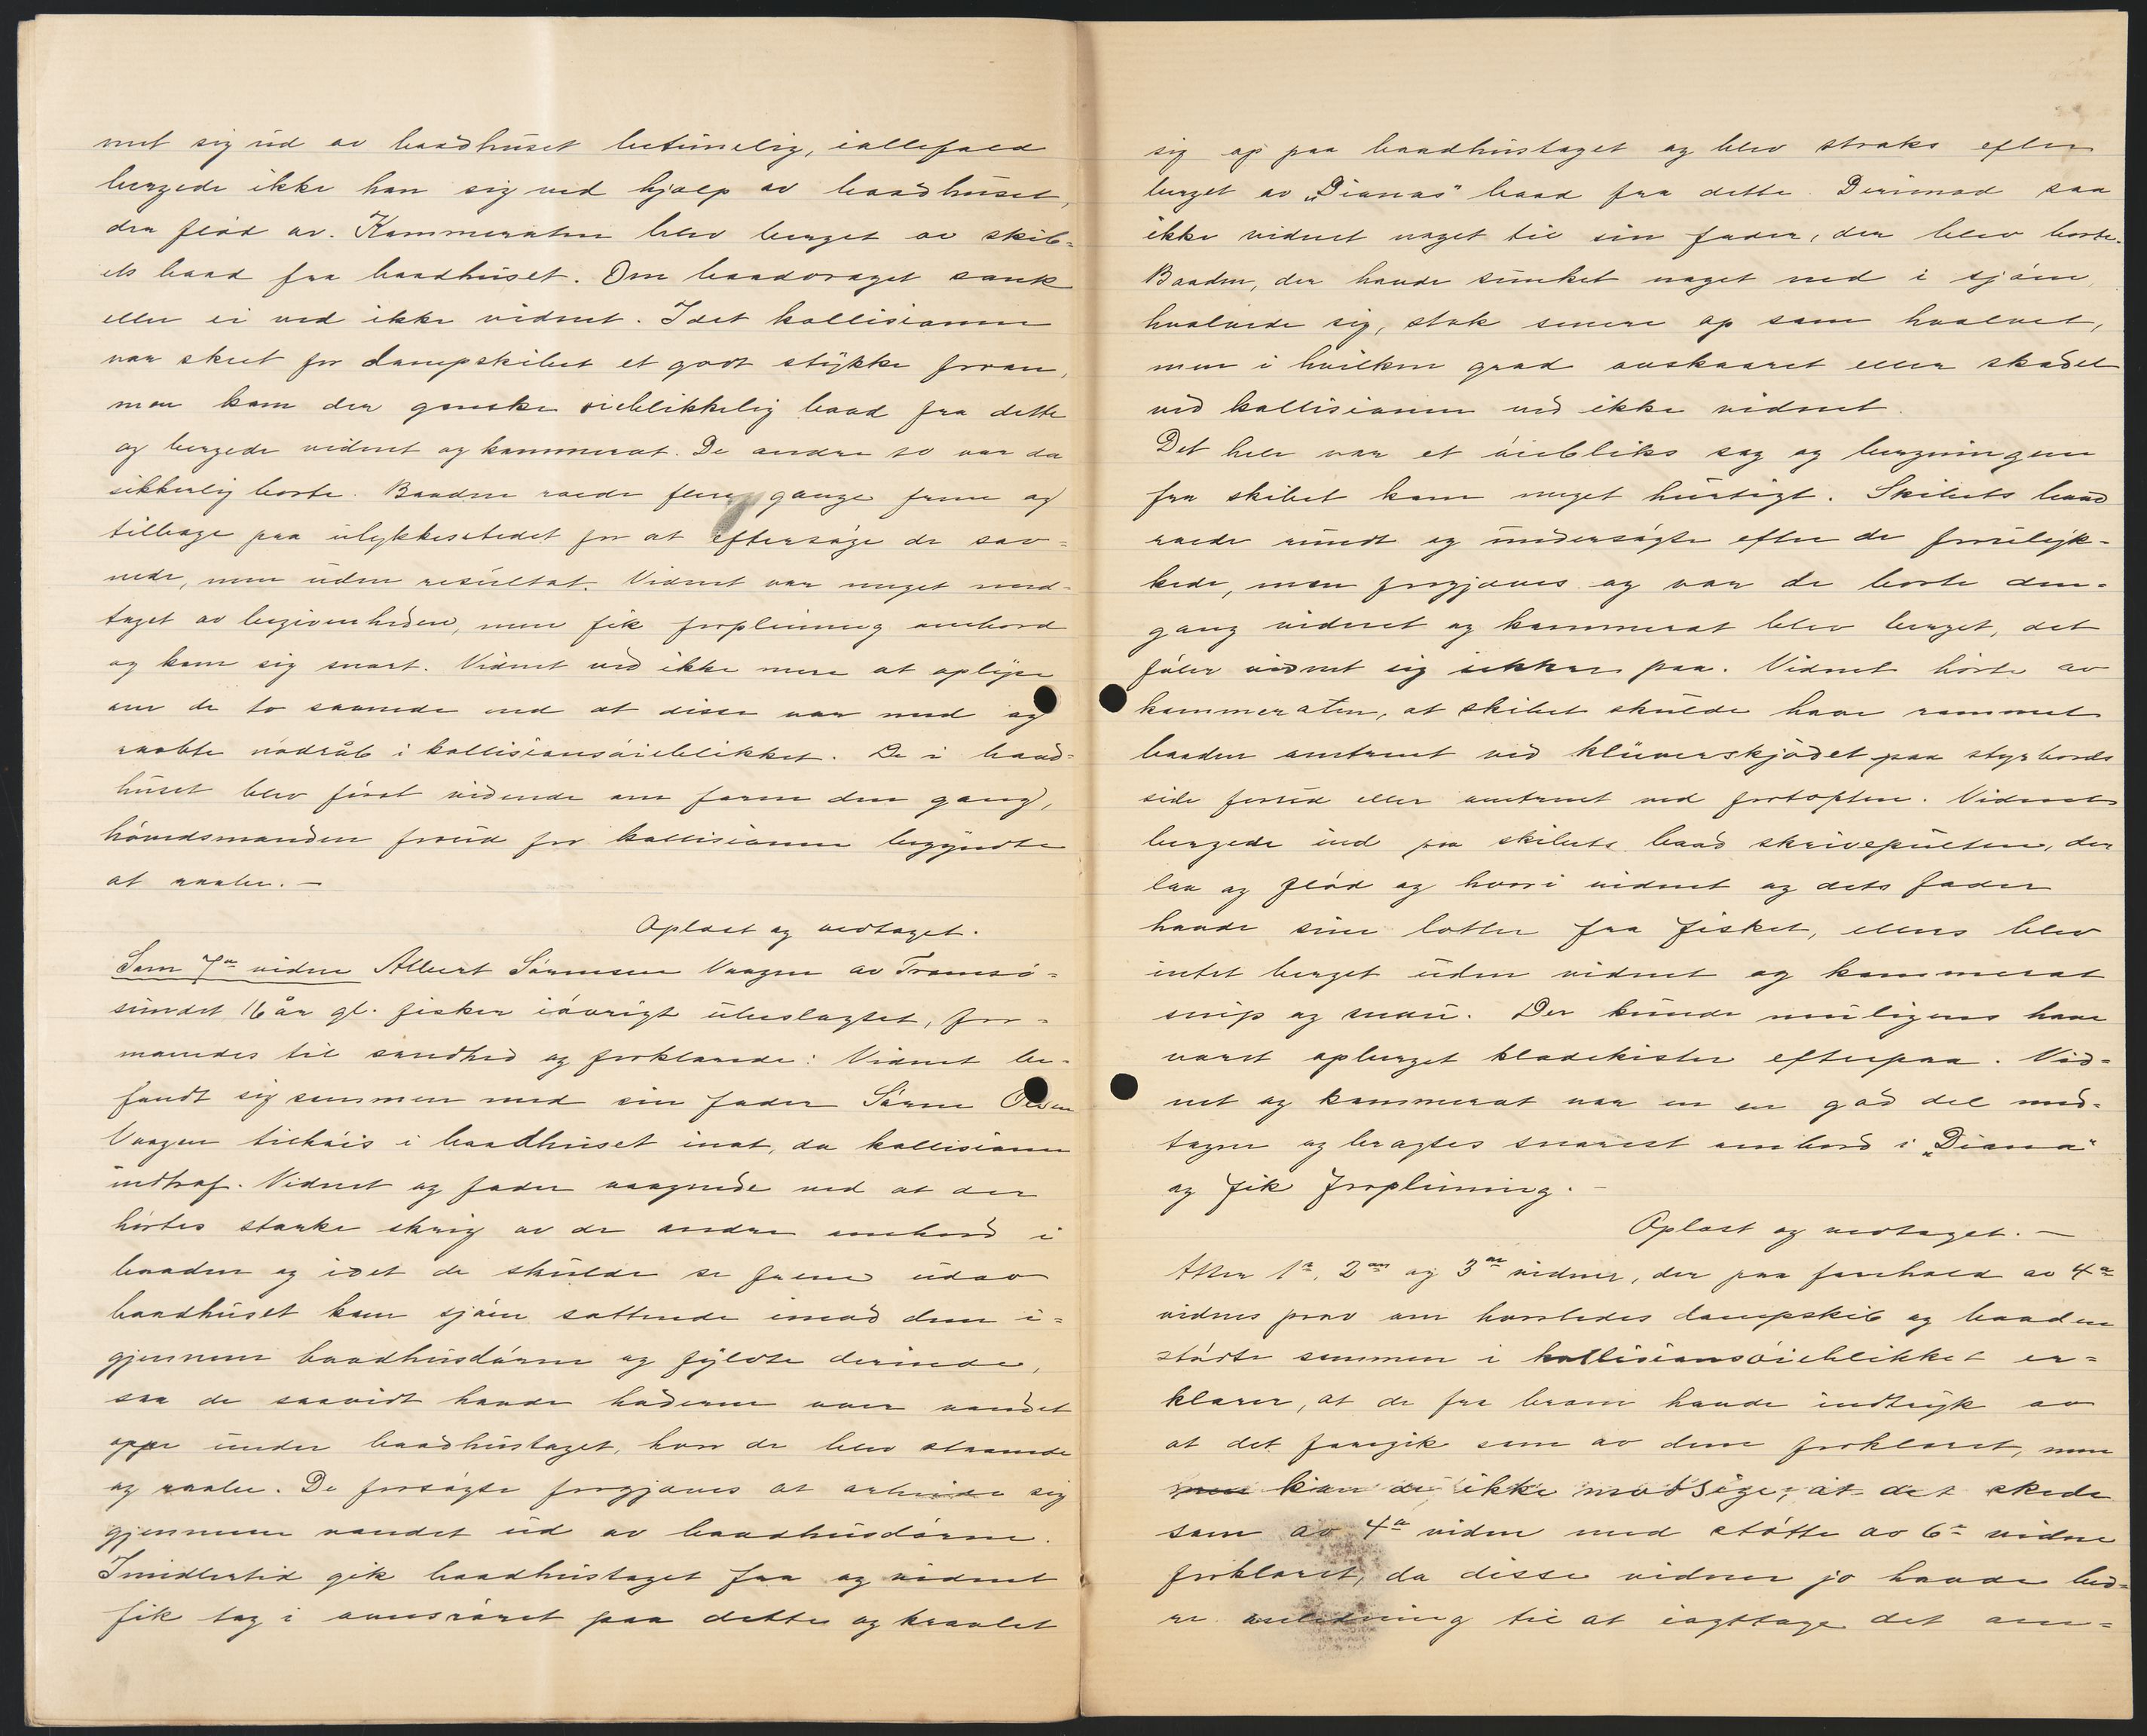 met sig ud av baadhuset betimelig, iallefald
bergede ikke han sig ved hjælp av baadhuset,
der flöd av. Kammeraten blev berget av skib-
ets baad fra baadhuset. Om baadvraget sank
eller ei ved ikke vidnet. Idet kollisionen
var skeet for dampskibet et godt stykke foran,
men kom der ganske öieblikkelig baad fra dette
og bergede vidnet og kammerat. De andre to var da
sikkerlig borte. Baaden roede flere gange frem og
tilbage paa ulykkesstedet for at eftersöge de sav-
nede, men uden resultat. Vidnet var meget med-
taget av begivenheden, men fik forpleining ombord
og kom sig snart. Vidnet ved ikke mere at oplyse
om de to savnede end at disse var med og
raabte nödråb i kollisionsöieblikket. De i baad-
huset blev först vidende om faren den gang,
hövedsmanden forud for kollisionen begyndte
at raabe. —
Oplæst og vedtaget.
Som 7de vidne Albert Sörensen Vaagen av Tromsö-
sundet 16 år gl. fisker iövrigt ubeslægtet, for-
manedes til sandhed og forklarede: Vidnet be-
fandt sig sammen med sin fader Sören Olsen
Vaagen tilköis i baadhuset inat, da kollisionen
indtraf. Vidnet og fader vaagnede ved at der
hörtes stærke skrig av de andre ombord i
baaden og idet de skulde se frem udav
baadhuset kom sjöen sættende imod dem i-
gjennem baadhusdören og fyldte derinde,
saa de saavidt havde hoderne over vandet
oppe under baadhustaget, hvor de blev staaende
og raabe. De forsögte forgjæves at arbeide sig
gjennem vandet ud av baadhusdören.
Imidlertid gik baadhustaget fra og vidnet
fik tag i ovnsröret paa dette og kravlet
sig op paa baadhustaget og blev straks efter
berget av „Dianas" baad fra dette. Derimod saa
ikke vidnet noget til sin fader, der blev borte.
Baaden, der havde sunket noget ned i sjöen,
hvalvede sig, stak senere op som hvalvet,
men i hvilken grad avskaaret eller skadet
ved kollisionen ved ikke vidnet.
Det hele var et öiebliks sag og bergningen
fra skibet kom meget hurtigt. Skibets baad
roede rundt og undersögte efter de forulyk-
kede, men forgjæves og var de borte den-
gang vidnet og kammerat blev berget, det
föler vidnet sig sikker paa. Vidnet hörte av
kammeraten, at skibet skulde have rammet
baaden omtrent ved klüverskjödet paa styrbords
side forud eller omtrent ved fortoften. Vidnet
bergede ind paa skibets baad skrivepulten, der
laa og flöd og hvori vidnet og dets fader
havde sine lotter fra fisket, ellers blev
intet berget uden vidnet og kammerat
snip og snau. Der kunde muligens have
været opberget klædekister efterpaa. Vid-
net og kammerat var en en god del med-
tagen og bragtes snarest ombord i „Diana"
og fik forpleining. —
Oplæst og vedtaget. —
Atter 1ste, 2den og 3die vidner, der paa forehold av 4de
vidnes prov om hvorledes dampskib og baaden
stödte sammen i kollisionsöieblikket er-
klærer, at de fra broen havde indtryk av
at det foregik som av dem forklaret, men
men kan de ikke modsige, at det skede
som av 4de vidne med stötte av 6te vidne
forklaret, da disse vidner jo havde bed-
re anledning til at iagttage det om-